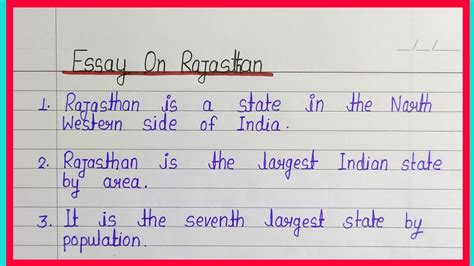 Essay On Rajasthan
1. Rajasthan is a state in the North
Western side of India.
2. Rajasthan is the largest Indian state
by area.
3. It is the seventh largest state by
population.